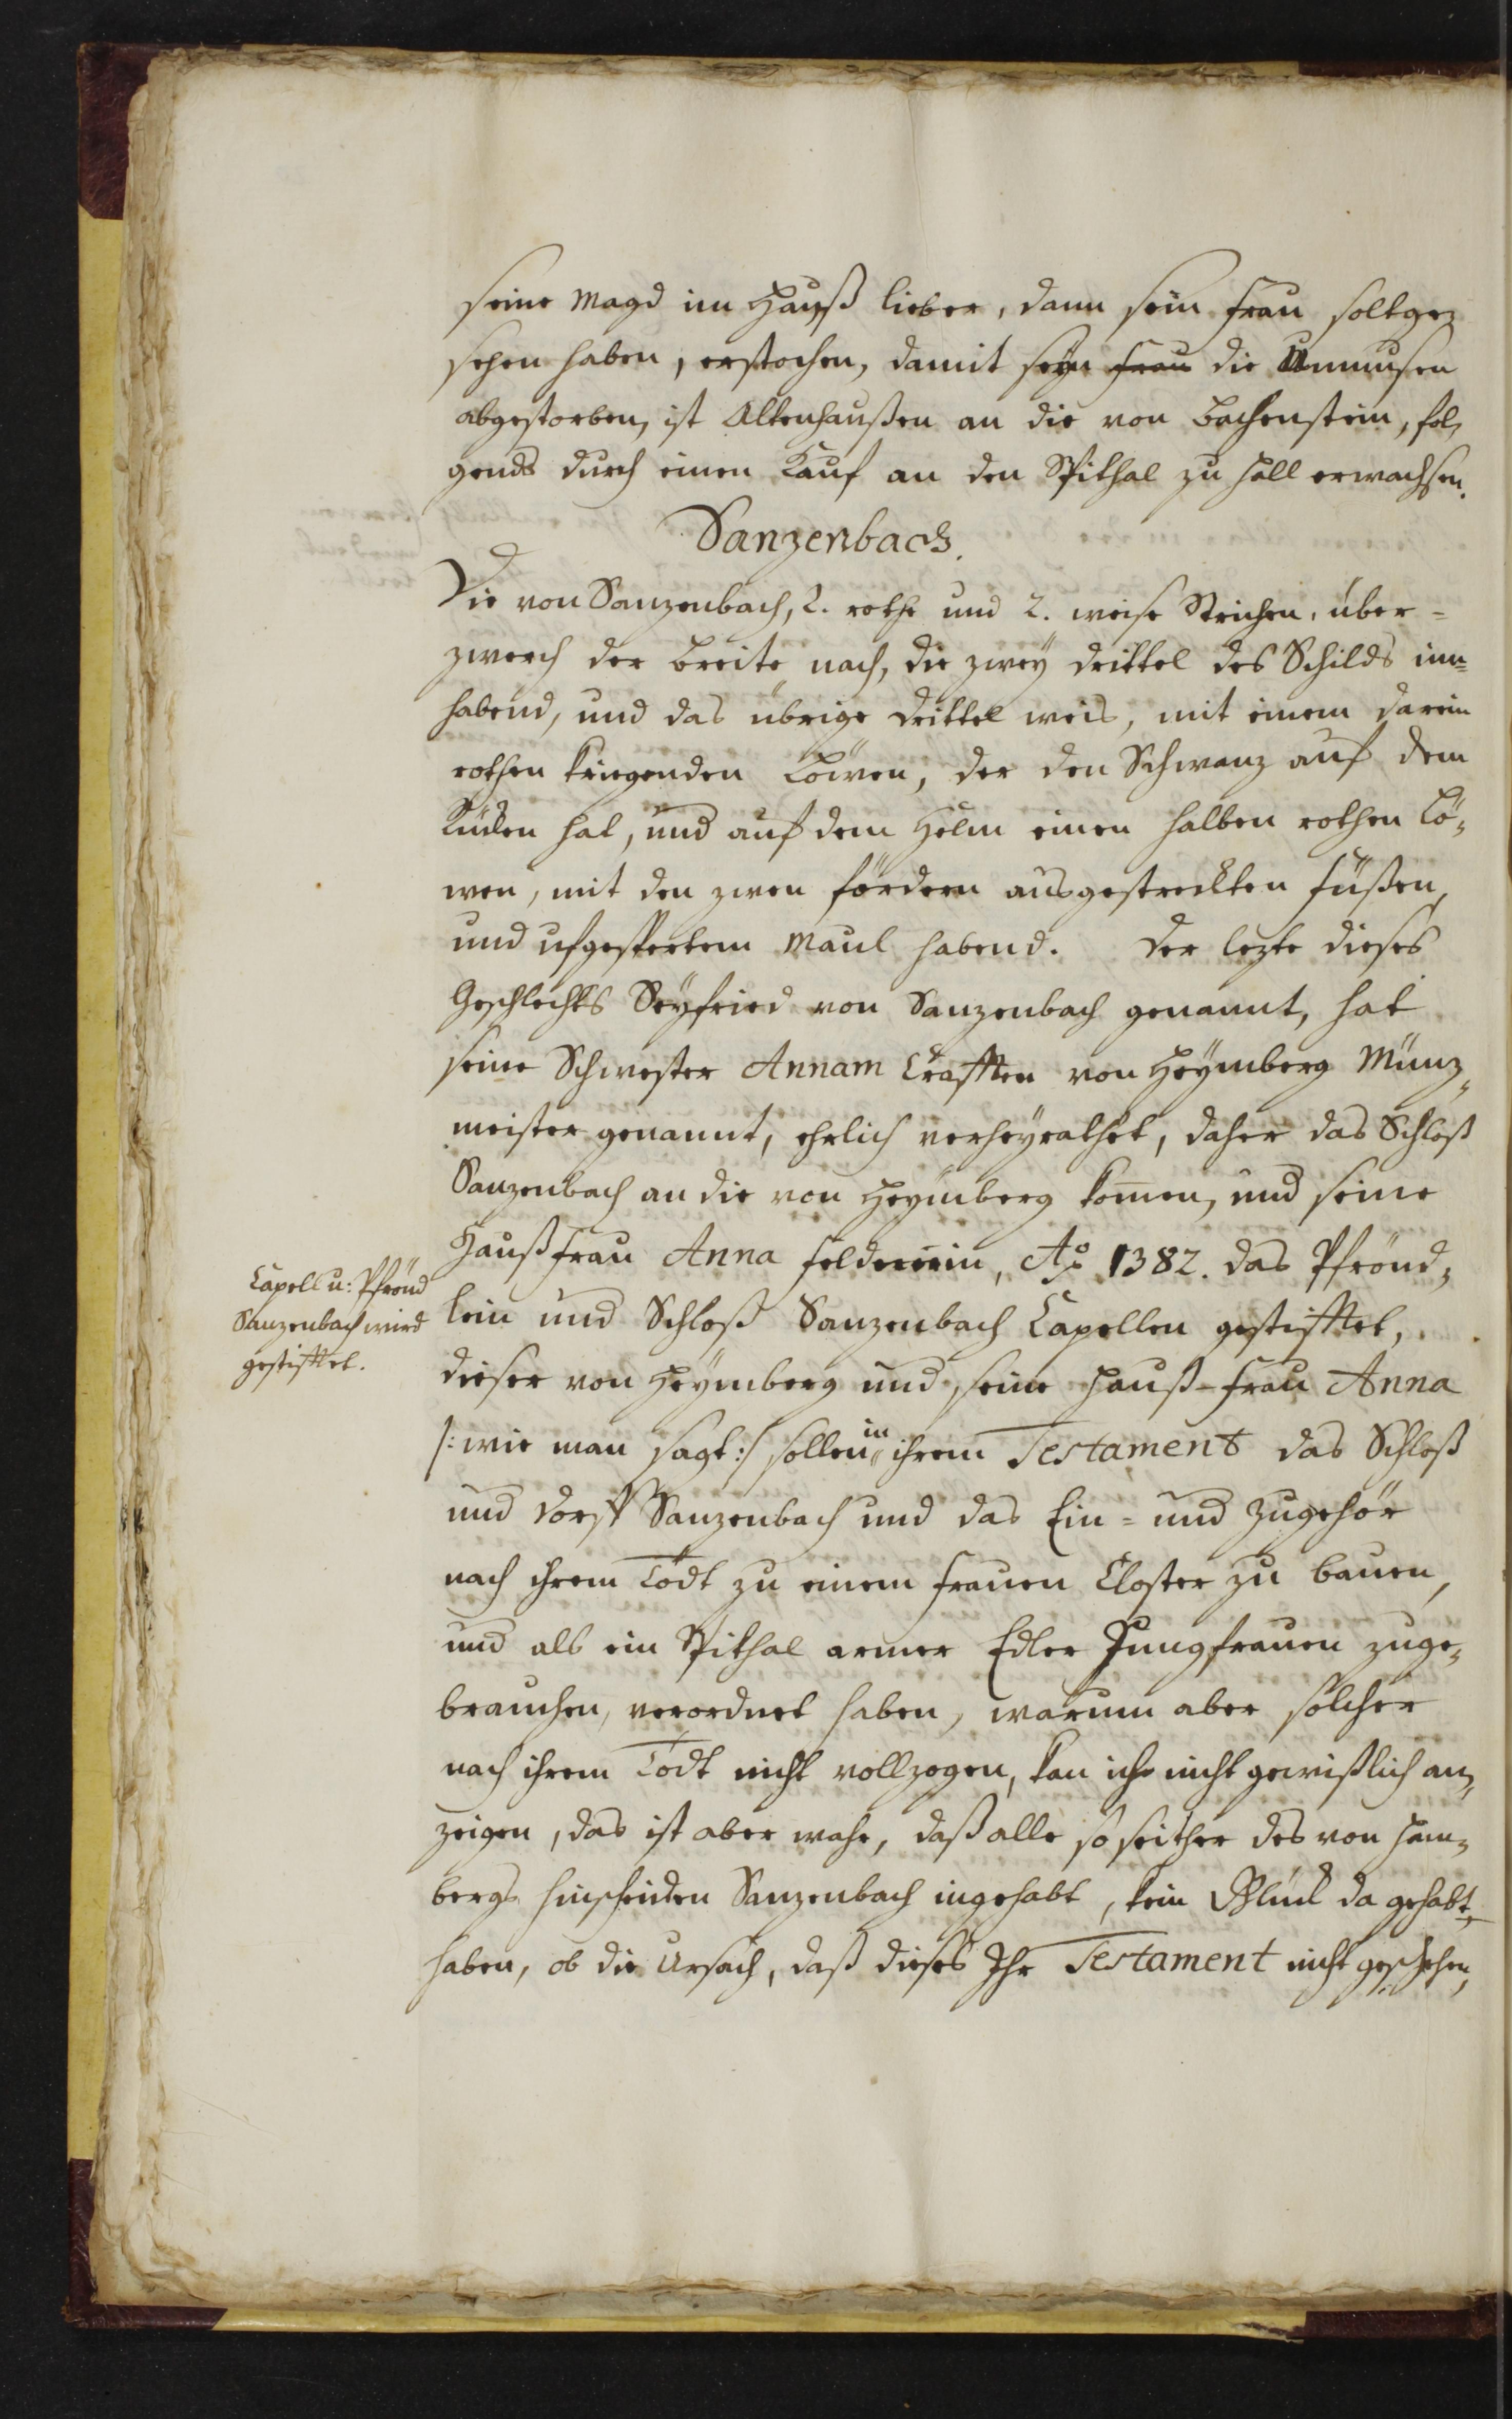 seine Magd im Hauß lieber, dann sein Frau soltge-
sehen haben, erstochen, damit seyn Frau die Unmusen
abgestorben, ist Altenhaußen an die von Bachenstein, fol-
gends durch einen Kauf an den Spithal zu Hall erwachsen.
Sanzenbach.
Die von Sanzenbach, 2. rothe und 2. weise Strichen, über-
zwerch der breite nach, die zwey drittel des Schilds inn-
habend, und das übrige drittel weis, mit einem darein
rothen kriegenden Löwen, der den Schwanz auf dem
Rücken hat, und auf dem Helm einen halben rothen Lö-
wen, mit den zwen fördern ausgestreckten Füßen,
und ufgespertem Maul habend. Der lezte dieses
Geschlechts Seyfried von Sanzenbach genannt, hat
seine Schwester Annam Crafften von Heymberg Münz-
meister genannt, ehrlich verheyrathet, daher das Schloß
Sanzenbach an die von Heymberg komen, und seine
Haußfrau Anna Feldnerin, Ao 1382. das Pfrönd-
lein und Schloß Sanzenbach Capellen gestifftet,
Capell u: Pfrönd
Sanzenbach wird
gestifftet.
dieser von Heymberg und seine Hauß-Frau Anna
/: wie man sagt :/ sollen in ihrem Testament das Schloß
und Dorff Sanzenbach und das Ein- und Zugehör
nach ihrem Todt zu einem Frauen Closter zu bauen,
und als ein Spithal armer Edler Jungfrauen zuge-
brauchen, verordnet haben, warum aber solcher
nach ihrem Todt nicht vollzogen, kan ich nicht gewißlich an-
zeigen, das ist aber wahr, daß alle so seither des von Heim-
bergs hinscheiden Sanzenbach ingehabt, kein Glück da gehabt
haben, ob die Ursach, daß dieses Ihr Testament nicht geschehen,